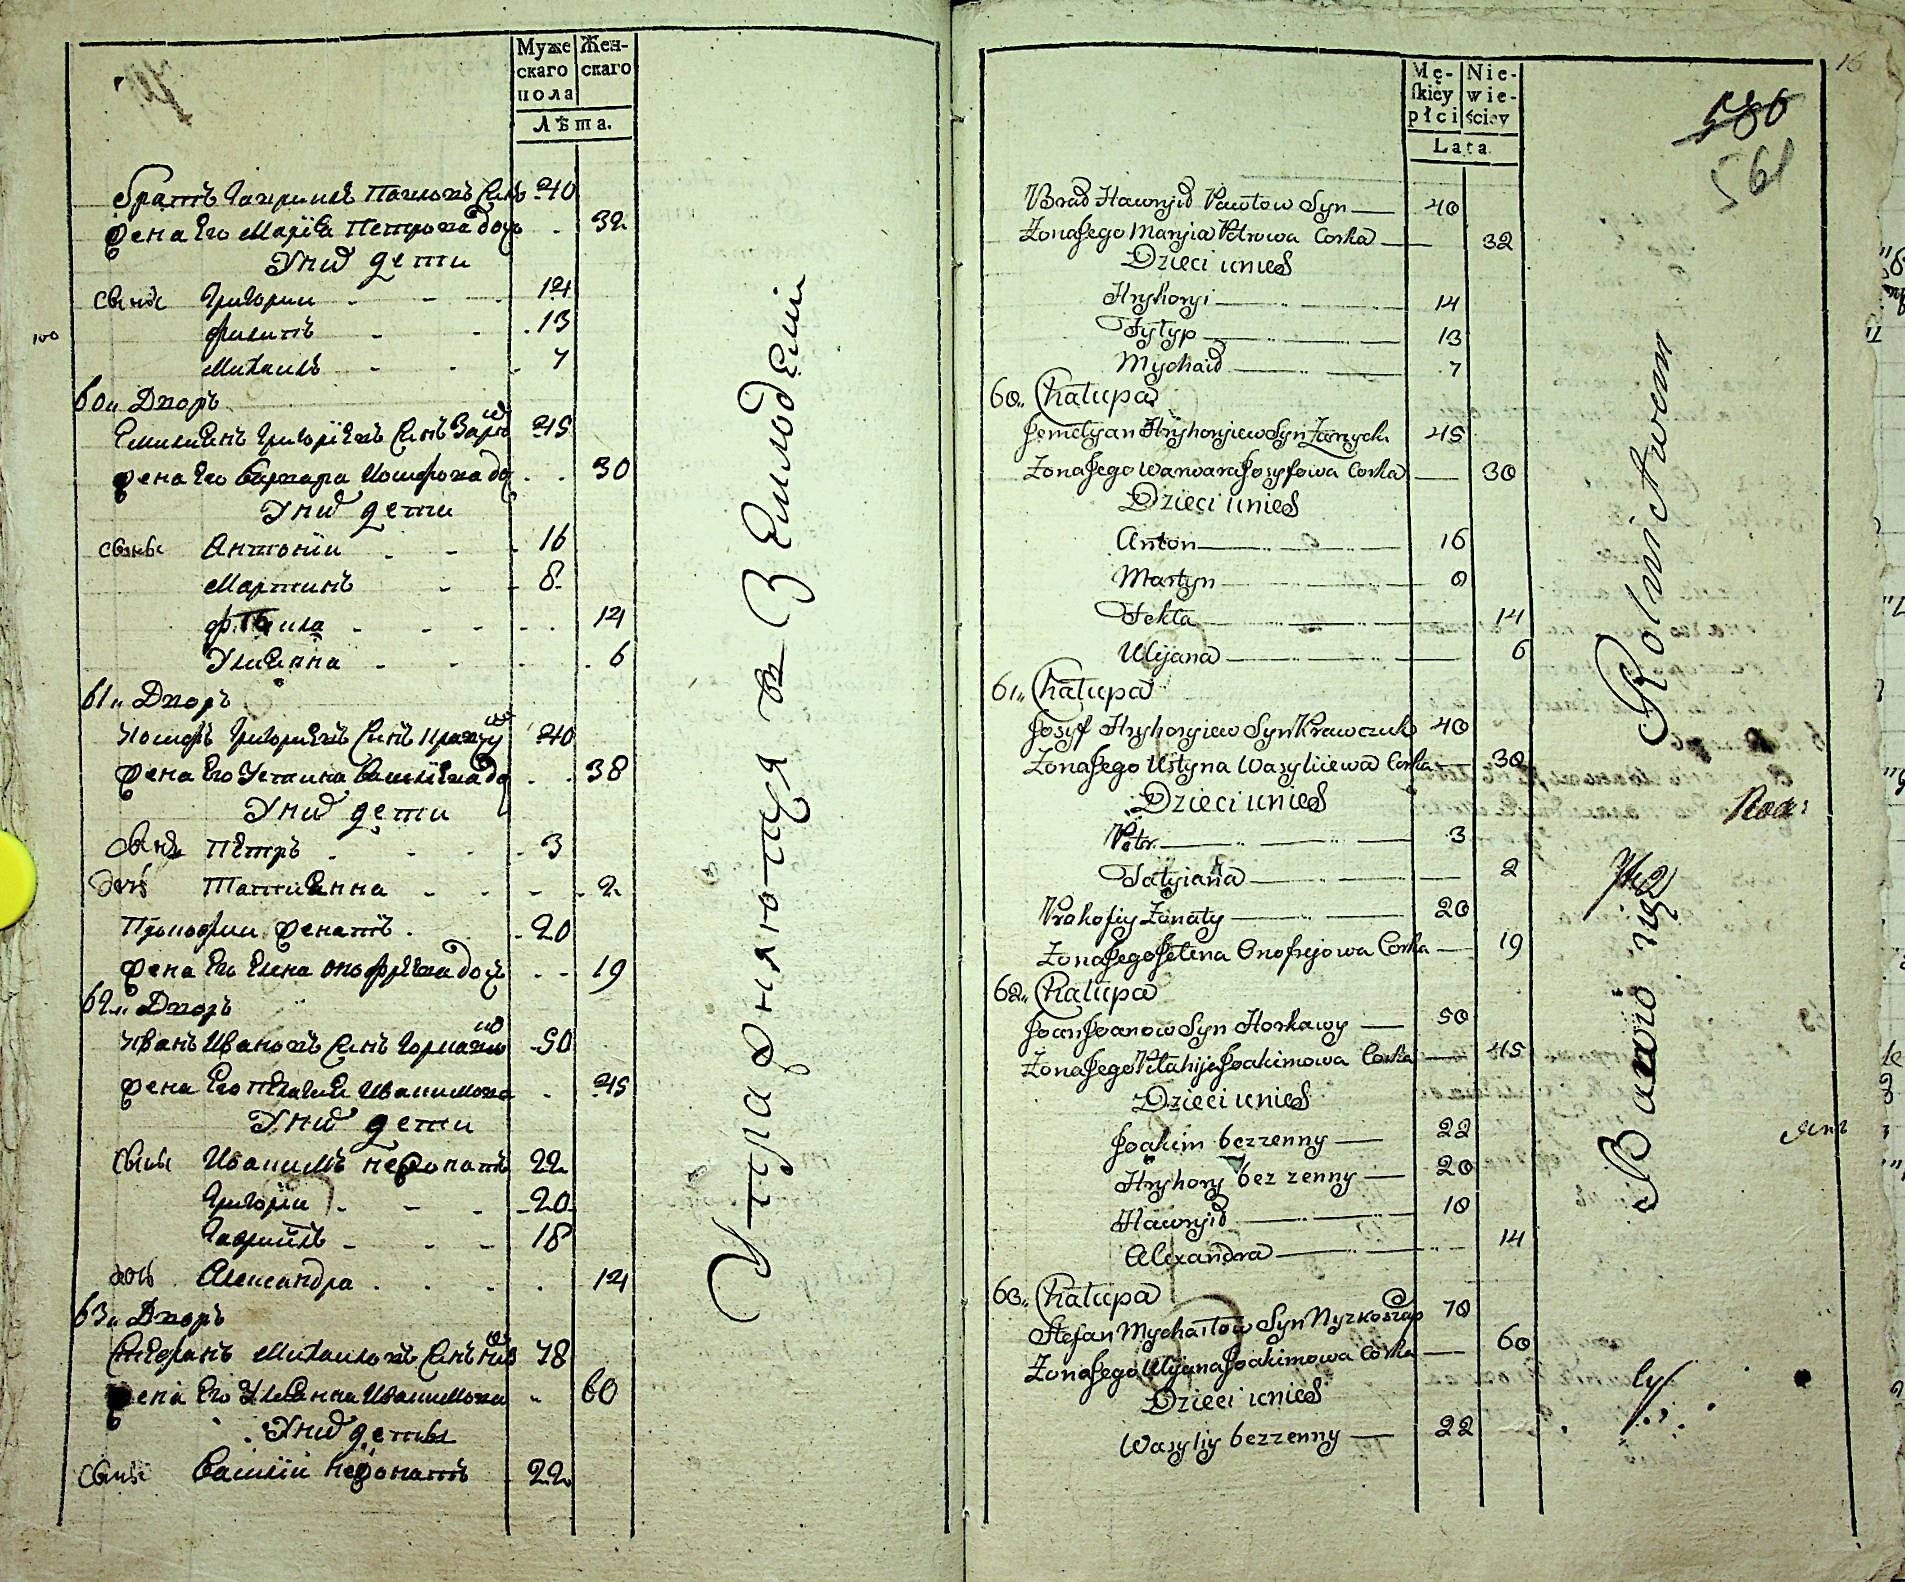 Муже
скаго
пола
Жен-
скаго
Лѣта.
братъ Гаврилъ Павловъ Синъ 40
жена Его Марїя Петрова доч 32
У нихъ дети
сыны Григории 14
100
Филипъ 13
Михаилъ 7
60„ Дворъ
Емилиянъ Григорїевъ Синъ 45
жена Его Варвара Иосифова до 30
У нихъ дети
сыны Антонїи 16
Мартинъ 8
14
Улияна 6
61„ Дворъ
Иосифъ Григориевъ Синъ 40
жена Его Устина Василїева до 38
У нихъ дети
сынъ Петръ 3
дочь Татиянна 2
Прокофии женатъ 20
жена Его Елена Онофрїева доч 19
62„ Дворъ
Иванъ Ивановъ Синъ 50
жена Его Пелагия Иоакимова 45
У нихъ дети
сыны Иоакимъ нежонатъ 22
Григорїи 20
Гаврїилъ 18
дочь Александра 14
63„ Дворъ
Стефанъ Михаиловъ Синъ 78
жена Его Улиянна Иоакимова 60
У нихъ дети
сынъ Василїи нежонатъ 22
Упражняются въ Земледелїи
16
580
561
Mę-
ſkiey
płci
Nie-
wie-
ściey
Lata
Brad Hawryid Pawłow Syn 40
Zona Jego Maryia Petrowa Corka 32
Dzieci unich
Hryhoryi 14
Fyłyp 13
Mychaid 7
60„ Chałupa
Jemelyan Hryhoryiew Syn 45
Zona Jego Warwara Josyfowa Corka 30
Dzieci unich
Anton 16
Martyn 8
Tekla 14
Ulyjana 6
61„ Chałupa
Josyf Hryhoryiew Syn Krawczuk 40
Zona Jego Ustyna Wasyliiewa Corka 38
Dzieci unich
Petr 3
Tatyiana 2
Prokofiy Zonaty 20
Zona Jego Jelina Onofryjowa Corka 19
62„ Chałupa
Joan Joanow Syn Horkawy 50
Zona Jego Pelahija Joakimowa Corka 45
Dzieci unich
Joakim bezzenny 22
Hryhory bez zenny 20
Hawryid 18
Alexandra 14
63„ Chałupa
Stefan Mychaiłow Syn 70
Zona Jego Ulyjana Joakimowa Corka 60
Dzieci unich
Wasyliy bezzenny 22
Bawio się Rolnictwem